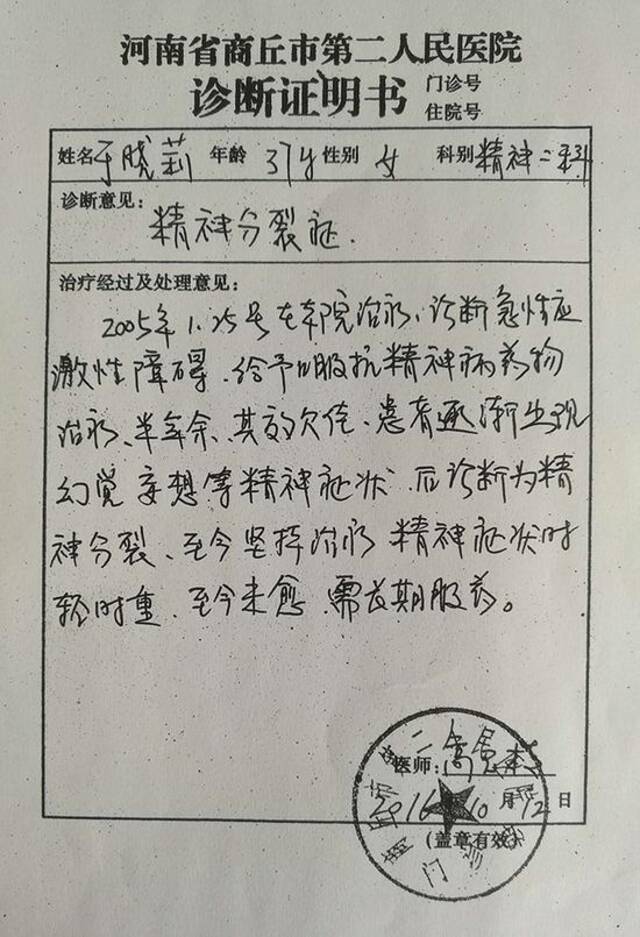 河南省商丘市第二人民医院
诊断证明书
门诊号
住院号
姓名 于晓莉 年龄 37岁 性别 女 科别 精神二科
诊断意见:
精神分裂症.
治疗经过及处理意见:
2005年1.25号在本院治疗、诊断急性应
激性障碍.给予口服抗精神病药物
治疗、半年余、其效欠佳、患者逐渐出现
幻觉妄想等精神症状.后诊断为精
神分裂、至今坚持治疗 精神症状时
轻时重、至今未愈.需长期服药。
医师:
2016年10月12日
(盖章有效)